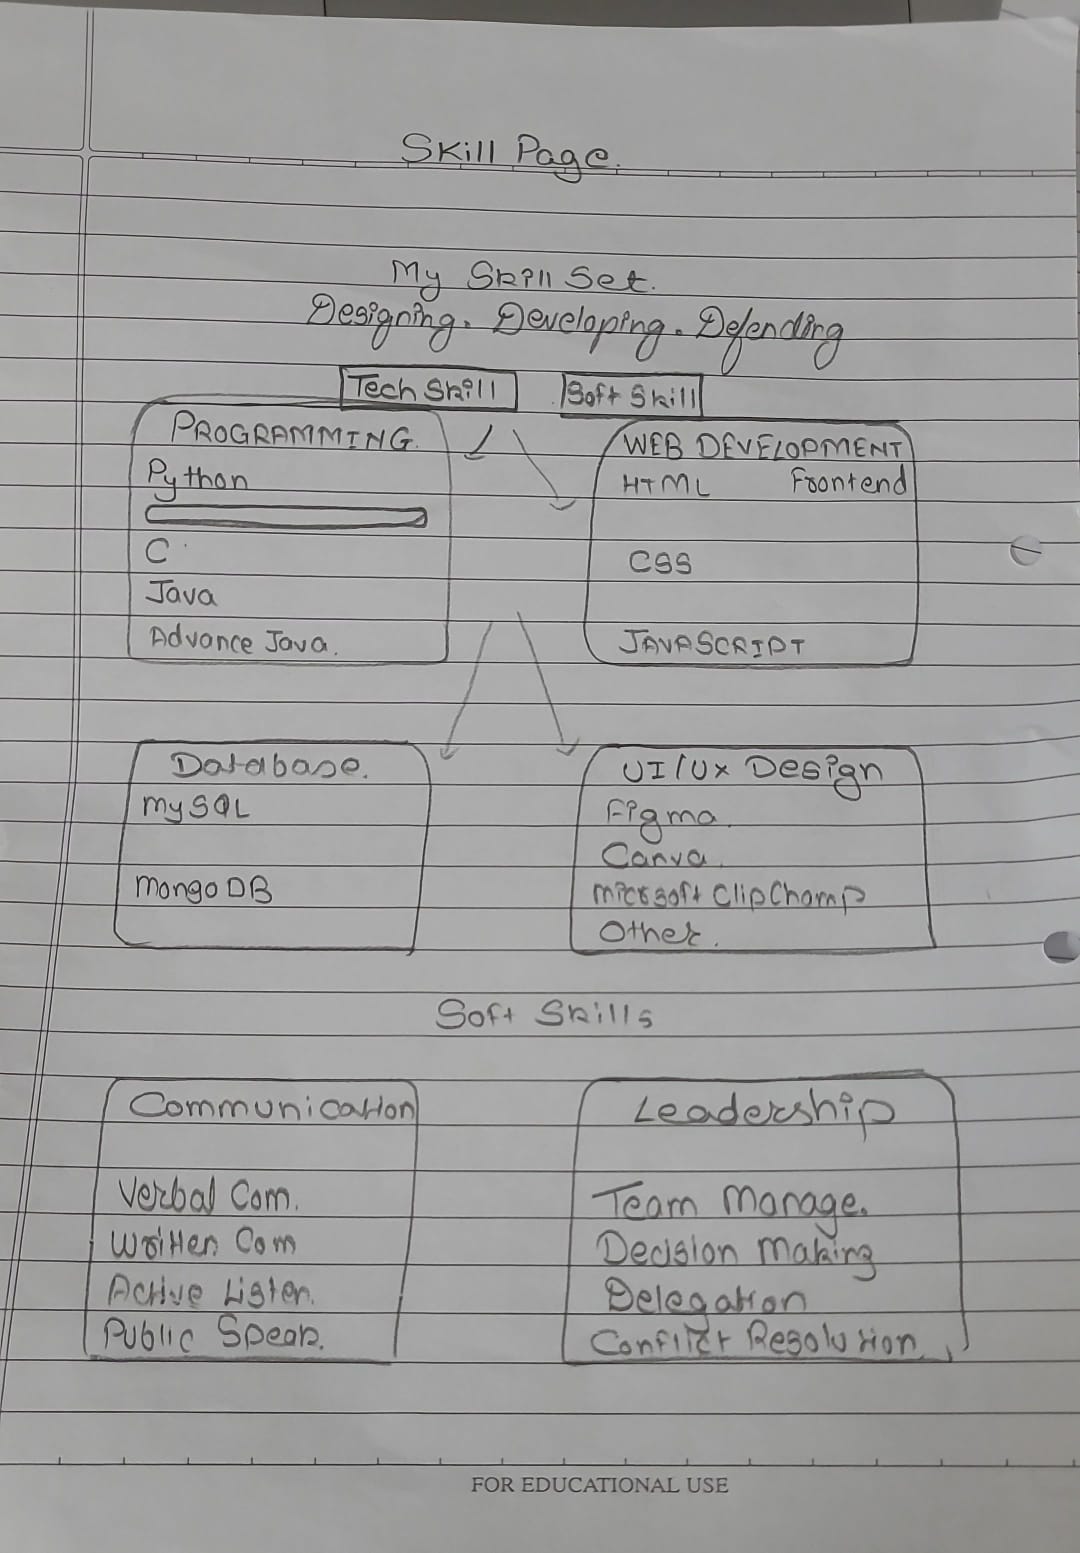 Skill Page.
My Skill Set.
Designing. Developing. Defending
Tech Skill
Soft Skill
PROGRAMMING.
Python
C
Java
Advance Java.
WEB DEVELOPMENT
HTML Frontend
CSS
JAVASCRIPT
Database.
MySQL
MongoDB
UI/UX Design
Figma.
Canva.
Microsoft ClipChamp
Other.
Soft Skills
Communication
Verbal Com.
Written Com
Active Listen.
Public Speak.
Leadership
Team Manage.
Decision Making
Delegation
Conflict Resolution.
FOR EDUCATIONAL USE